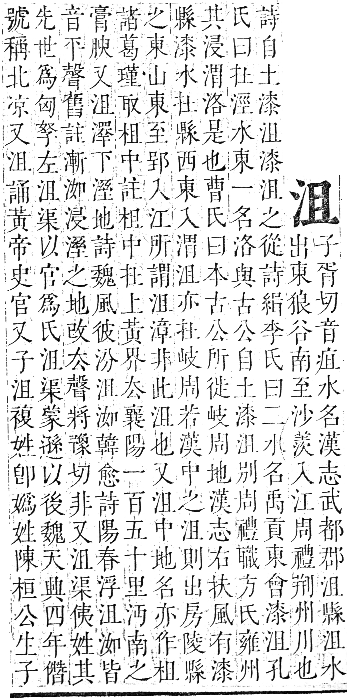 沮子胥切音疽水名漢志武都郡沮縣沮水
出東狼谷南至沙羨入江周禮荆州川也
詩自土漆沮漆沮之從詩緝李氏曰二水名禹貢東會漆沮孔
氏曰在涇水東一名洛與古公自土漆沮别周禮職方氏雍州
其浸渭洛是也曹氏曰本古公所徙岐周地漢志右扶風有漆
縣漆水在縣西東入渭沮亦在岐周若漢中之沮則出房陵縣
之東山東至郢入江所謂沮漳非此沮也又沮中地名亦作柤
諸葛瑾取柤中註柤中在上黃界去襄陽一百五十里沔南之
膏腴又沮澤下溼地詩魏風彼汾沮洳韓愈詩陽春浮沮洳皆
音平聲舊註漸洳浸溼之地改去聲將豫切非又沮渠侇姓其
先世爲匈奴左沮渠以官爲氏沮渠蒙遜以後魏天興四年僭
號稱北凉又沮誦黃帝史官又子沮複姓卽嬀姓陳桓公生子